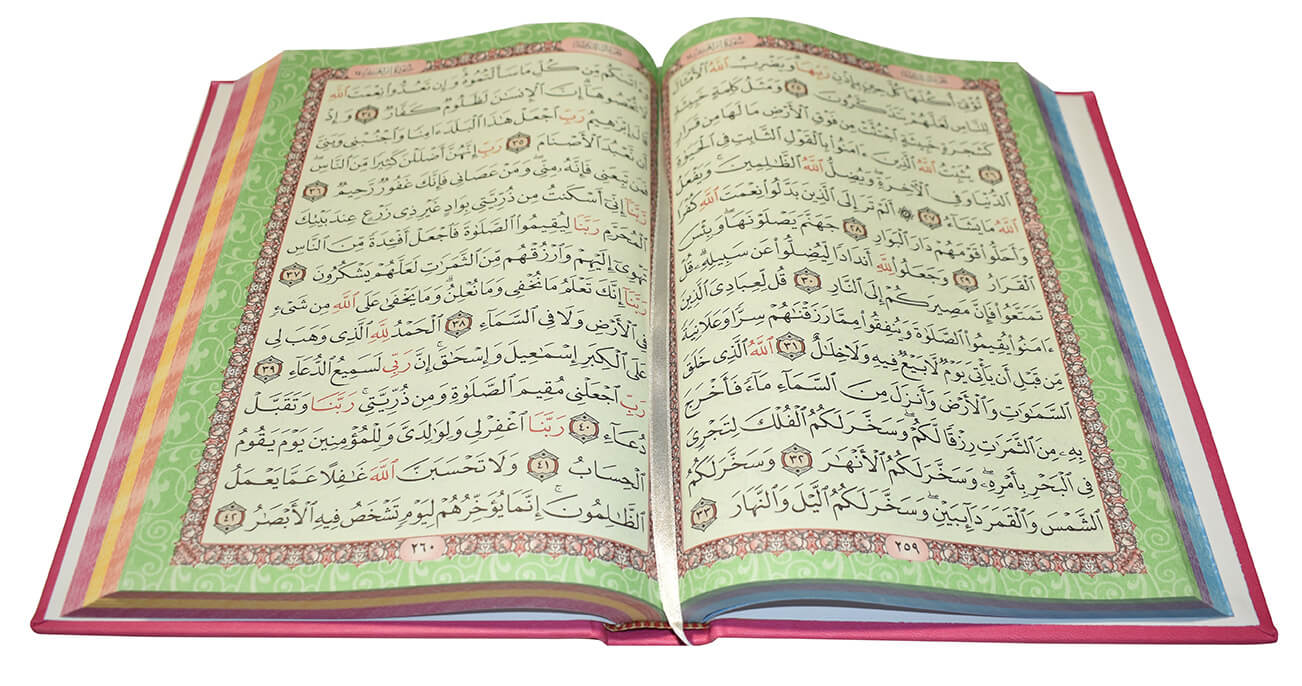 الجزء الثالث عشر
سورة إبراهيم
تُؤْتِىٓ أُكُلَهَا كُلَّ حِينٍۭ بِإِذْنِ رَبِّهَا ۗ وَيَضْرِبُ ٱللَّهُ ٱلْأَمْثَالَ
لِلنَّاسِ لَعَلَّهُمْ يَتَذَكَّرُونَ ٢٥ وَمَثَلُ كَلِمَةٍ خَبِيثَةٍ
كَشَجَرَةٍ خَبِيثَةٍ ٱجْتُثَّتْ مِن فَوْقِ ٱلْأَرْضِ مَا لَهَا مِن قَرَارٍ
٢٦ يُثَبِّتُ ٱللَّهُ ٱلَّذِينَ ءَامَنُوا۟ بِٱلْقَوْلِ ٱلثَّابِتِ فِى ٱلْحَيَوٰةِ
ٱلدُّنْيَا وَفِى ٱلْـَٔاخِرَةِ ۖ وَيُضِلُّ ٱللَّهُ ٱلظَّـٰلِمِينَ ۚ وَيَفْعَلُ
ٱللَّهُ مَا يَشَآءُ ٢٧ ۞ أَلَمْ تَرَ إِلَى ٱلَّذِينَ بَدَّلُوا۟ نِعْمَتَ ٱللَّهِ كُفْرًا
وَأَحَلُّوا۟ قَوْمَهُمْ دَارَ ٱلْبَوَارِ ٢٨ جَهَنَّمَ يَصْلَوْنَهَا ۖ وَبِئْسَ
ٱلْقَرَارُ ٢٩ وَجَعَلُوا۟ لِلَّهِ أَندَادًا لِّيُضِلُّوا۟ عَن سَبِيلِهِۦ ۗ قُلْ
تَمَتَّعُوا۟ فَإِنَّ مَصِيرَكُمْ إِلَى ٱلنَّارِ ٣٠ قُل لِّعِبَادِىَ ٱلَّذِينَ
ءَامَنُوا۟ يُقِيمُوا۟ ٱلصَّلَوٰةَ وَيُنفِقُوا۟ مِمَّا رَزَقْنَـٰهُمْ سِرًّا وَعَلَانِيَةً
مِّن قَبْلِ أَن يَأْتِىَ يَوْمٌ لَّا بَيْعٌ فِيهِ وَلَا خِلَـٰلٌ ٣١ ٱللَّهُ ٱلَّذِى خَلَقَ
ٱلسَّمَـٰوَٰتِ وَٱلْأَرْضَ وَأَنزَلَ مِنَ ٱلسَّمَآءِ مَآءً فَأَخْرَجَ
بِهِۦ مِنَ ٱلثَّمَرَٰتِ رِزْقًا لَّكُمْ ۖ وَسَخَّرَ لَكُمُ ٱلْفُلْكَ لِتَجْرِىَ
فِى ٱلْبَحْرِ بِأَمْرِهِۦ ۖ وَسَخَّرَ لَكُمُ ٱلْأَنْهَـٰرَ ٣٢ وَسَخَّرَ لَكُمُ
ٱلشَّمْسَ وَٱلْقَمَرَ دَآئِبَيْنِ ۖ وَسَخَّرَ لَكُمُ ٱلَّيْلَ وَٱلنَّهَارَ ٣٣
٢٥٩
سورة إبراهيم
مِّن كُلِّ مَا سَأَلْتُمُوهُ ۚ وَإِن تَعُدُّوا۟ نِعْمَتَ ٱللَّهِ
تُحْصُوهَآ ۗ إِنَّ ٱلْإِنسَـٰنَ لَظَلُومٌ كَفَّارٌ ٣٤ وَإِذْ
قَالَ إِبْرَٰهِيمُ رَبِّ ٱجْعَلْ هَـٰذَا ٱلْبَلَدَ ءَامِنًا وَٱجْنُبْنِى وَبَنِىَّ
أَن نَّعْبُدَ ٱلْأَصْنَامَ ٣٥ رَبِّ إِنَّهُنَّ أَضْلَلْنَ كَثِيرًا مِّنَ ٱلنَّاسِ ۖ
فَمَن تَبِعَنِى فَإِنَّهُۥ مِنِّى ۖ وَمَنْ عَصَانِى فَإِنَّكَ غَفُورٌ رَّحِيمٌ ٣٦
رَّبَّنَآ إِنِّىٓ أَسْكَنتُ مِن ذُرِّيَّتِى بِوَادٍ غَيْرِ ذِى زَرْعٍ عِندَ بَيْتِكَ
ٱلْمُحَرَّمِ رَبَّنَا لِيُقِيمُوا۟ ٱلصَّلَوٰةَ فَٱجْعَلْ أَفْـِٔدَةً مِّنَ ٱلنَّاسِ
تَهْوِىٓ إِلَيْهِمْ وَٱرْزُقْهُم مِّنَ ٱلثَّمَرَٰتِ لَعَلَّهُمْ يَشْكُرُونَ ٣٧
رَبَّنَآ إِنَّكَ تَعْلَمُ مَا نُخْفِى وَمَا نُعْلِنُ ۗ وَمَا يَخْفَىٰ عَلَى ٱللَّهِ مِن شَىْءٍ
فِى ٱلْأَرْضِ وَلَا فِى ٱلسَّمَآءِ ٣٨ ٱلْحَمْدُ لِلَّهِ ٱلَّذِى وَهَبَ لِى
عَلَى ٱلْكِبَرِ إِسْمَـٰعِيلَ وَإِسْحَـٰقَ ۚ إِنَّ رَبِّى لَسَمِيعُ ٱلدُّعَآءِ ٣٩
رَبِّ ٱجْعَلْنِى مُقِيمَ ٱلصَّلَوٰةِ وَمِن ذُرِّيَّتِى ۚ رَبَّنَا وَتَقَبَّلْ
دُعَآءِ ٤٠ رَبَّنَا ٱغْفِرْ لِى وَلِوَٰلِدَىَّ وَلِلْمُؤْمِنِينَ يَوْمَ يَقُومُ
ٱلْحِسَابُ ٤١ وَلَا تَحْسَبَنَّ ٱللَّهَ غَـٰفِلًا عَمَّا يَعْمَلُ
ٱلظَّـٰلِمُونَ ۚ إِنَّمَا يُؤَخِّرُهُمْ لِيَوْمٍ تَشْخَصُ فِيهِ ٱلْأَبْصَـٰرُ ٤٢
٢٦٠